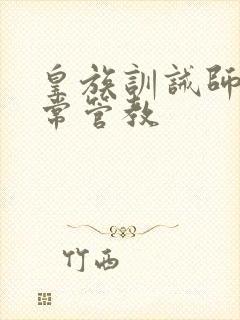 皇族訓誡師
常管教
竹西